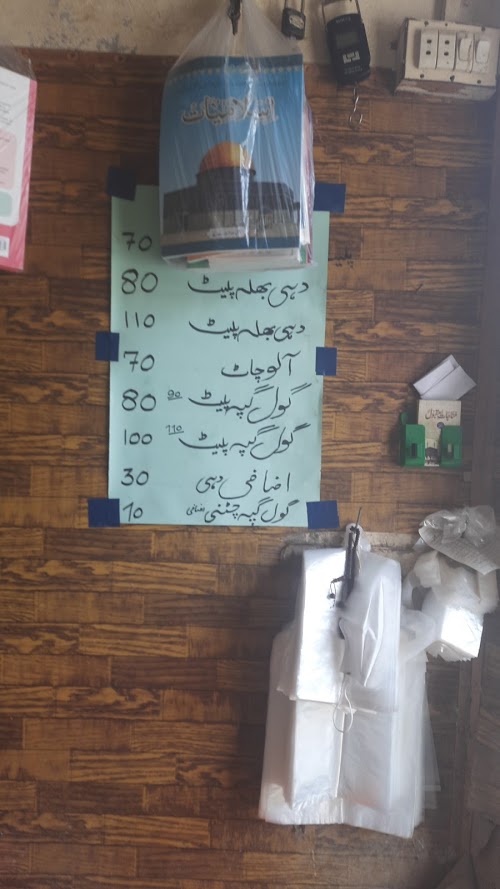 اسلامیات
70
دہی بھلہ پلیٹ 80
دہی بھلہ پلیٹ 110
آلو چاٹ 70
گول گپہ پلیٹ 90 80
گول گپہ پلیٹ 110 100
اضافی دہی 30
گول گپہ چٹنی اضافی 10